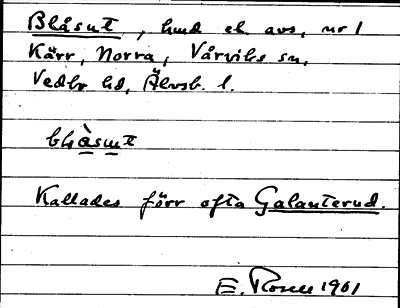 Blåsut, hmd el. avs, nr 1
Kärr, Norra, Vårviks sn,
Vedbo hd, Älvsb. l.
blàsut
Kallades förr ofta Galanterud.
E. Rosen 1961